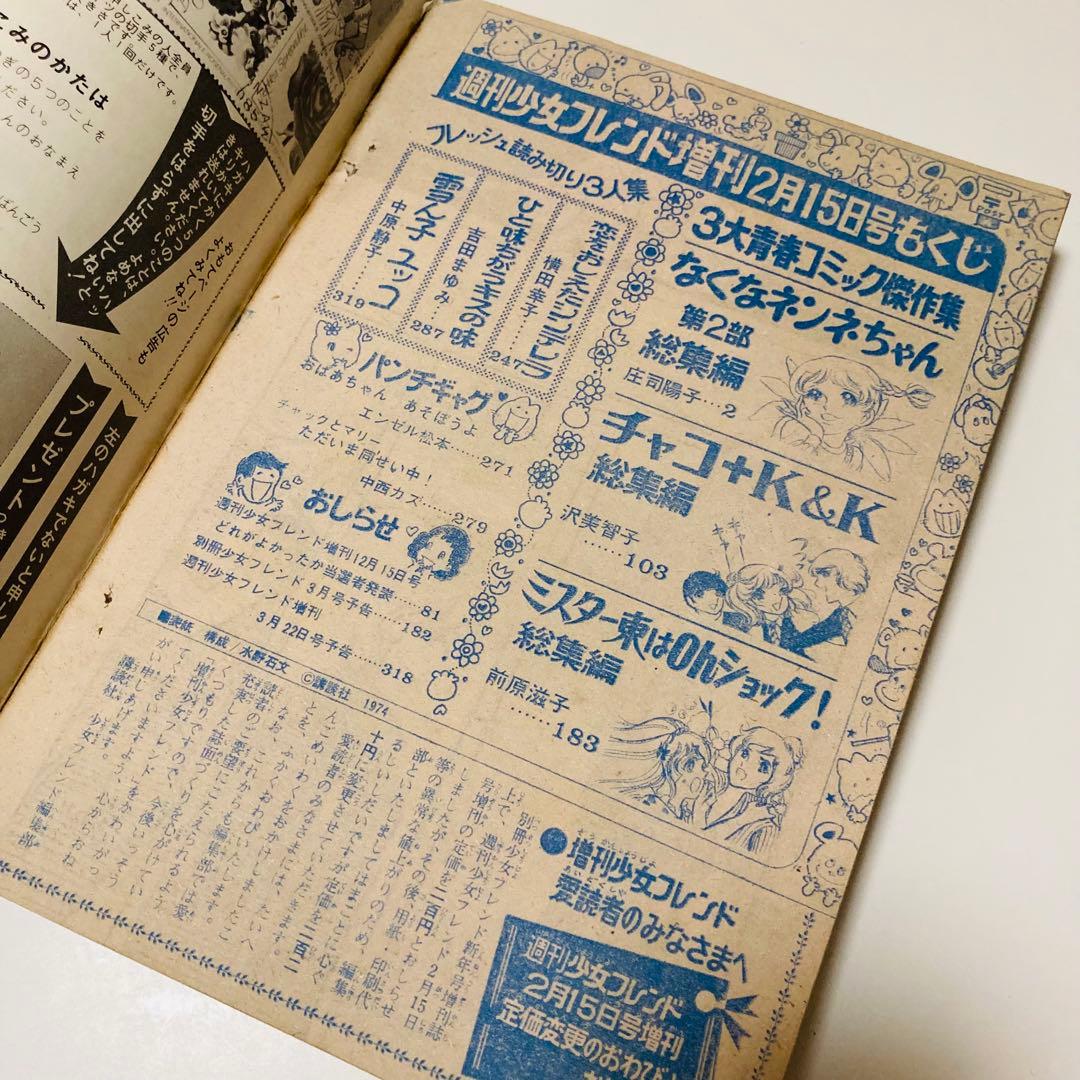 週刊少女フレンド増刊2月15日号もくじ
3大青春コミック傑作集
なくなネンネちゃん
第2部
総集編
庄司陽子…2
チャコ+K&K
総集編
沢美智子
……103
ミスター東はOhショック!
総集編
前原滋子
……183
フレッシュ読み切り3人集
恋をおしえたシンデレラ
横田幸子
247
ひと味ちがうキスの味
吉田まゆみ
287
雪ん子ユッコ
中原静子
319
パンチギャグ
おばあちゃん あそぼうよ
エンゼル松本……271
チャックとマリー
ただいま同せい中!
中西カズ……279
おしらせ
週刊少女フレンド増刊12月15日号
どれがよかったか当選者発表……81
別冊少女フレンド3月号予告……182
週刊少女フレンド増刊
3月22日号予告……318
■表紙 構成/水野石文 ©講談社 1974
●増刊少女フレンド
愛読者のみなさまへ
週刊少女フレンド
2月15日号増刊
定価変更のおわび
別冊少女フレンド新年号増刊誌
上で、週刊少女フレンド2月15日
号増刊の定価を二百円とおしらせ
しましたが、その後、用紙・印刷代
等の異常な値上がりのため、編集
部といたしましてはまことに心ぐ
るしいしだいですが定価を二百二
十円に変更させていただきます。
愛読者のみなさまには、
なお、ふかくおわびいたします。
読者のご要望にこたえられるよう
充実した誌面づくりを心がけてい
くつもりですので、今後いっそう
増刊少女フレンドをかわいがっ
てくださいますよう、心からおね
がい申しあげます。
講談社 少女フレンド編集部
こみのかたは
ぎの5つのことを
ださい。
んのおなまえ
ばんごう
しこみの人全員
ツの切手5種で、
さです。
は、1人1回だけです。
切手をはらずに出してね!
おもてページの広告も
よくみてね!!
左のハガキでないと申し
プレゼント